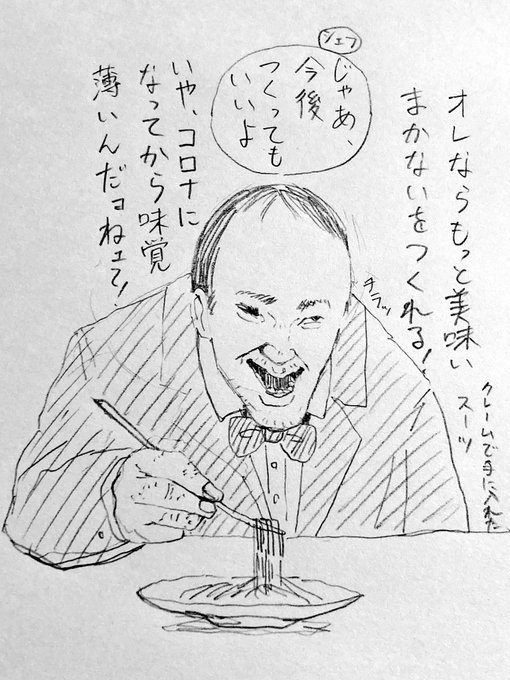 オレならもっと美味い
まかないをつくれる!
クレームで手に入れた
スーツ
チラッ
シェフ
じゃあ、
今後
つくっても
いいよ
いや、コロナに
なってから味覚
薄いんだヨねェて!